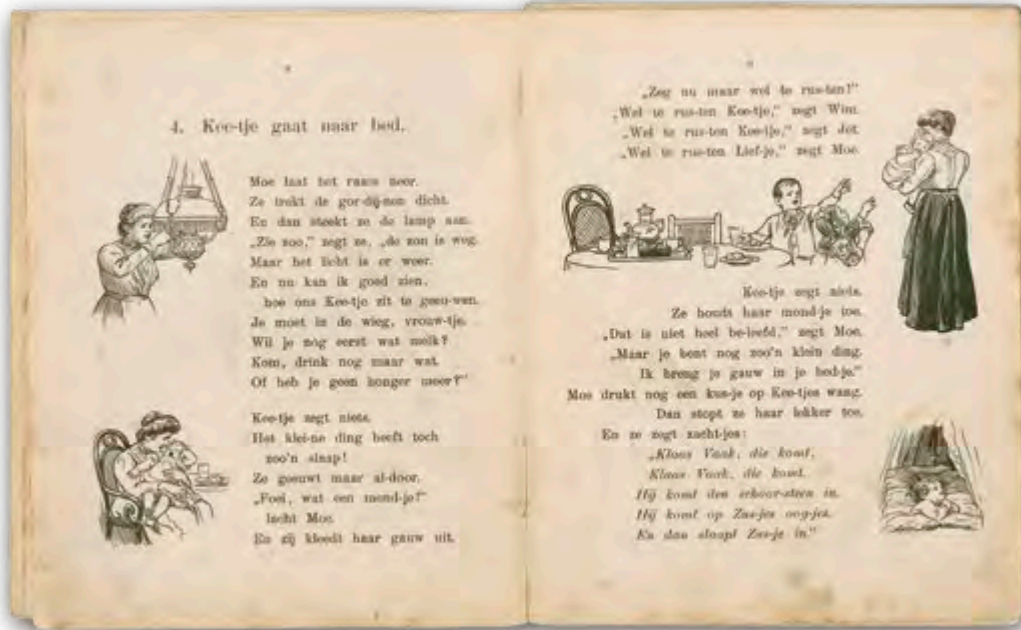 4. Kee-tje gaat naar bed.
Moe laat het raam neer.
Ze trekt de gor-dij-nen dicht.
En dan steekt ze de lamp aan.
„Zie zoo,” zegt ze, „de zon is weg.
Maar het licht is er weer.
En nu kan ik goed zien,
hoe ons Kee-tje zit te geeu-wen.
Je moet in de wieg, vrouw-tje.
Wil je nog eerst wat melk?
Kom, drink nog maar wat.
Of heb je geen honger meer?”
Kee-tje zegt niets.
Het klei-ne ding heeft toch
zoo'n slaap!
Ze geeuwt maar al-door.
„Foei, wat een mond-je!”
lacht Moe.
En zij kleedt haar gauw uit.
„Zeg nu maar wel te rus-ten!”
„Wel te rus-ten Kee-tje,” zegt Wim.
„Wel te rus-ten Kee-tje,” zegt Jet.
„Wel te rus-ten Lief-je,” zegt Moe.
Kee-tje zegt niets.
Ze houdt haar mond-je toe.
„Dat is niet heel be-leefd,” zegt Moe.
„Maar je bent nog zoo'n klein ding.
Ik breng je gauw in je bed-je.”
Moe drukt nog een kus-je op Kee-tjes wang.
Dan stopt ze haar lekker toe.
En ze zegt zacht-jes:
„Klaas Vaak, die komt,
Klaas Vaak, die komt.
Hij komt den schoor-steen in.
Hij komt op Zus-jes oog-jes.
En dan slaapt Zus-je in.”